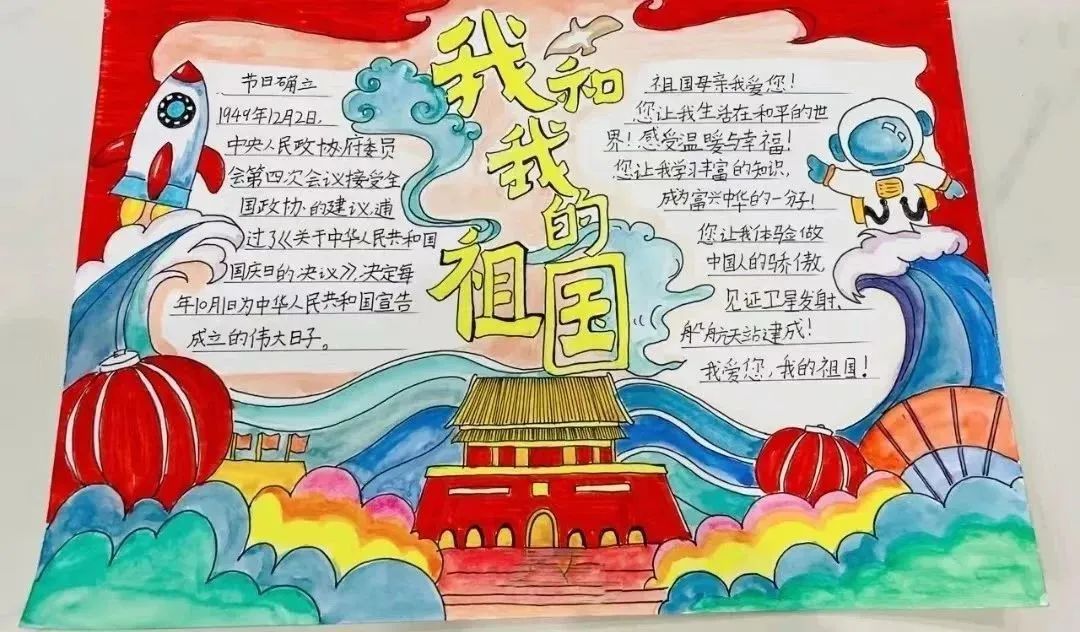 我和我的祖国
节日确立
1949年12月2日,
中央人民政协府委员
会第四次会议接受全
国政协的建议,通
过了《关于中华人民共和国
国庆日的决议》决定每
年10月1日为中华人民共和国宣告
成立的伟大日子。
祖国母亲我爱您!
您让我生活在和平的世
界!感受温暖与幸福!
您让我学习丰富的知识,
成为富兴中华的一分子!
您让我体验做
中国人的骄傲,
见证卫星发射、
船航天站建成!
我爱您,我的祖国!